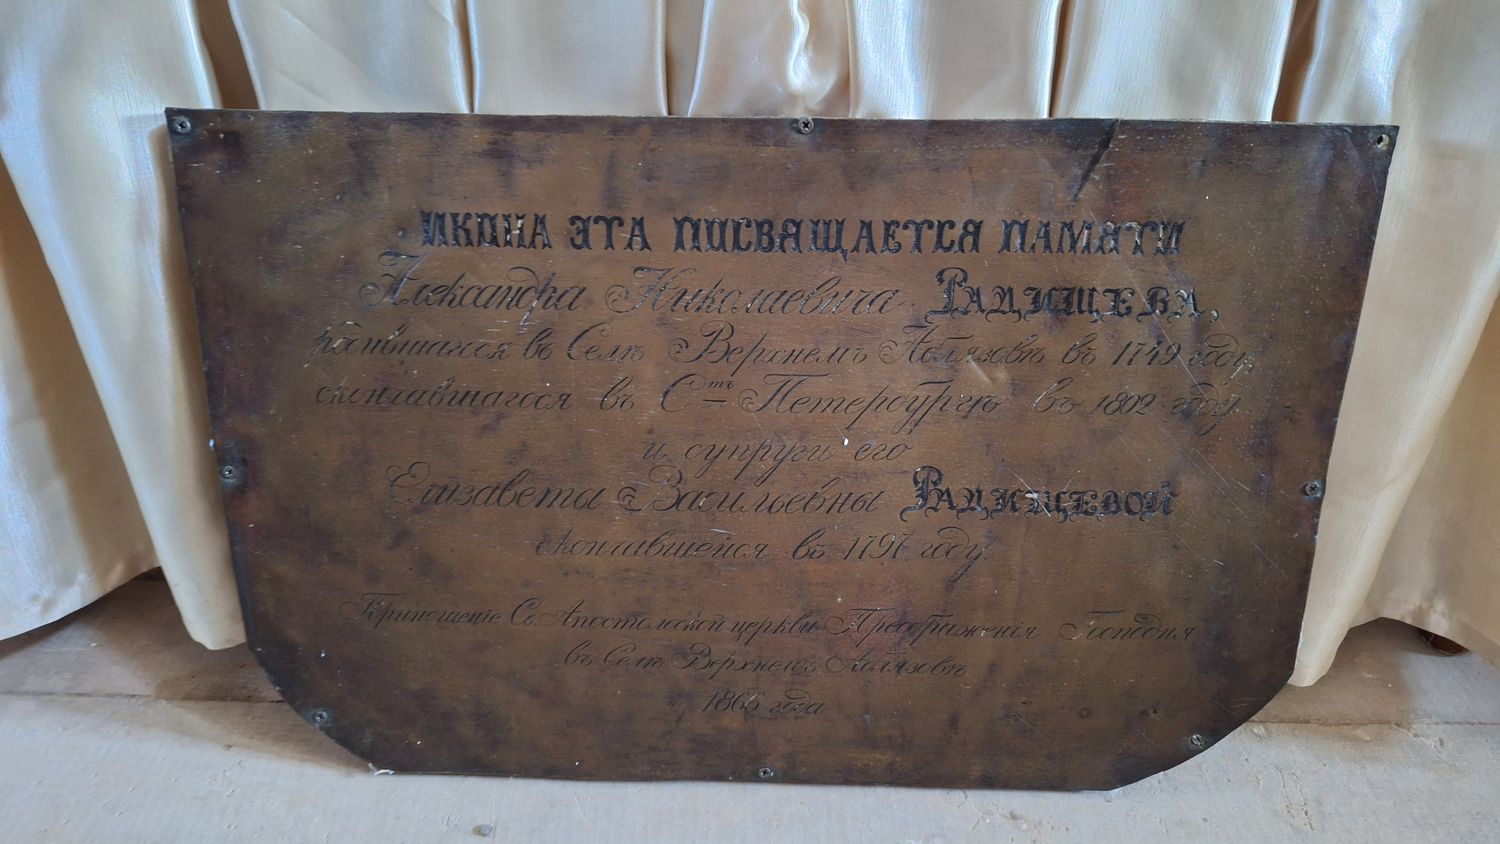 ИКОНА ЭТА ПОСВЯЩАЕТСЯ ПАМЯТИ
Александра Николаевича РАДИЩЕВА,
родившагося въ Селѣ Верхнемъ Аблязовѣ въ 1749 году,
скончавшагося въ С-тъ Петербургѣ въ 1802 году
и супруги его
Елизаветы Васильевны РАДИЩЕВОЙ
скончавшейся въ 1797 году
Приношеніе Св. Апостольской церкви Преображенія Господня
въ Селѣ Верхнемъ Аблязовѣ
1866 года